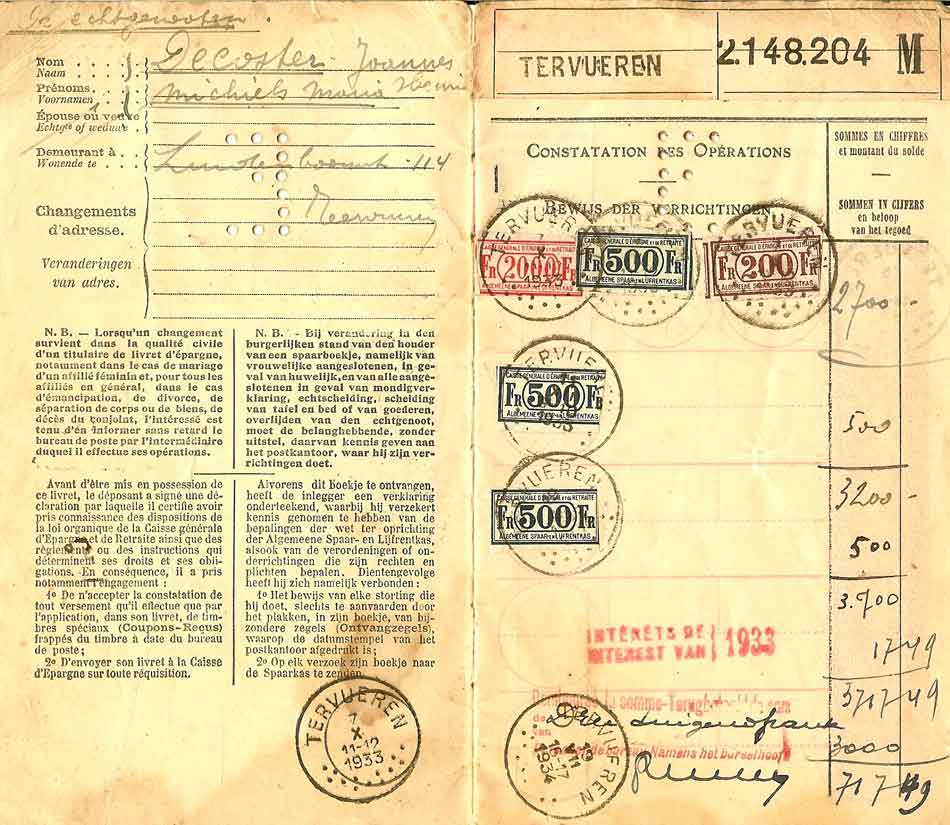 De echtgenooten
Nom
Naam
Decoster Joannes
Prénoms
Voornamen
Michiels Maria
Épouse ou veuve
Echtgte of weduwe
Demeurant à
Wonende te
114
Changements
d'adresse.
Veranderingen
van adres.
N. B. — Lorsqu'un changement
survient dans la qualité civile
d'un titulaire de livret d'épargne,
notamment dans le cas de mariage
d'un affilié féminin et, pour tous les
affiliés en général, dans le cas
d'émancipation, de divorce, de
séparation de corps ou de biens, de
décès du conjoint, l'intéressé est
tenu d'en informer sans retard le
bureau de poste par l'intermédiaire
duquel il effectue ses opérations.
N. B. - Bij verandering in den
burgerlijken stand van den houder
van een spaarboekje, namelijk van
vrouwelijke aangeslotenen, in ge-
val van huwelijk, en van alle aange-
slotenen in geval van mondigver-
klaring, echtscheiding, scheiding
van tafel en bed of van goederen,
overlijden van den echtgenoot,
moet de belanghebbende, zonder
uitstel, daarvan kennis geven aan
het postkantoor, waar hij zijn ver-
richtingen doet.
Avant d'être mis en possession de
ce livret, le déposant a signé une dé-
claration par laquelle il certifie avoir
pris connaissance des dispositions de
la loi organique de la Caisse générale
d'Epargne et de Retraite ainsi que des
règlements ou des instructions qui
déterminent ses droits et ses obli-
gations. En conséquence, il a pris
notamment l'engagement :
1º De n'accepter la constatation de
tout versement qu'il effectue que par
l'application, dans son livret, de tim-
bres spéciaux (Coupons-Reçus)
frappés du timbre à date du bureau
de poste ;
2º D'envoyer son livret à la Caisse
d'Epargne sur toute réquisition.
Alvorens dit boekje te ontvangen,
heeft de inlegger een verklaring
onderteekend, waarbij hij verzekert
kennis genomen te hebben van de
bepalingen der wet ter oprichting
der Algemeene Spaar- en Lijfrentkas,
alsook van de verordeningen of on-
derrichtingen die zijn rechten en
plichten bepalen. Dientengevolge
heeft hij zich namelijk verbonden :
1º Het bewijs van elke storting die
hij doet, slechts te aanvaarden door
het plakken, in zijn boekje, van bij-
zondere zegels (Ontvangzegels),
waarop de datumstempel van het
postkantoor afgedrukt is ;
2º Op elk verzoek zijn boekje naar
de Spaarkas te zenden.
TERVUEREN
7
X
11-12
1933
TERVUEREN
2.148.204 M
CONSTATATION DES OPÉRATIONS
BEWIJS DER VERRICHTINGEN
SOMMES EN CHIFFRES
et montant du solde
SOMMEN IN CIJFERS
en beloop
van het tegoed
TERVUEREN
7
X
1933
CAISSE GÉNÉRALE D'ÉPARGNE ET DE RETRAITE
FR 2000 FR
ALGEMEENE SPAAR EN LIJFRENTKAS
CAISSE GÉNÉRALE D'ÉPARGNE ET DE RETRAITE
FR 500 FR
ALGEMEENE SPAAR EN LIJFRENTKAS
TERVUEREN
CAISSE GÉNÉRALE D'ÉPARGNE ET DE RETRAITE
FR 200 FR
ALGEMEENE SPAAR EN LIJFRENTKAS
2700 -
TERVUEREN
CAISSE GÉNÉRALE D'ÉPARGNE ET DE RETRAITE
FR 500 FR
ALGEMEENE SPAAR EN LIJFRENTKAS
1933
500
3200 -
TERVUEREN
CAISSE GÉNÉRALE D'ÉPARGNE ET DE RETRAITE
FR 500 FR
ALGEMEENE SPAAR EN LIJFRENTKAS
500
3.700
INTÉRETS DE
INTEREST VAN
1933
17-49
3717-49
Remboursé la somme-Terugbetaald de som
de
van
Namens het bureelhoofd
3000
717 49
TERVUEREN
19
VIII
16-17
1934